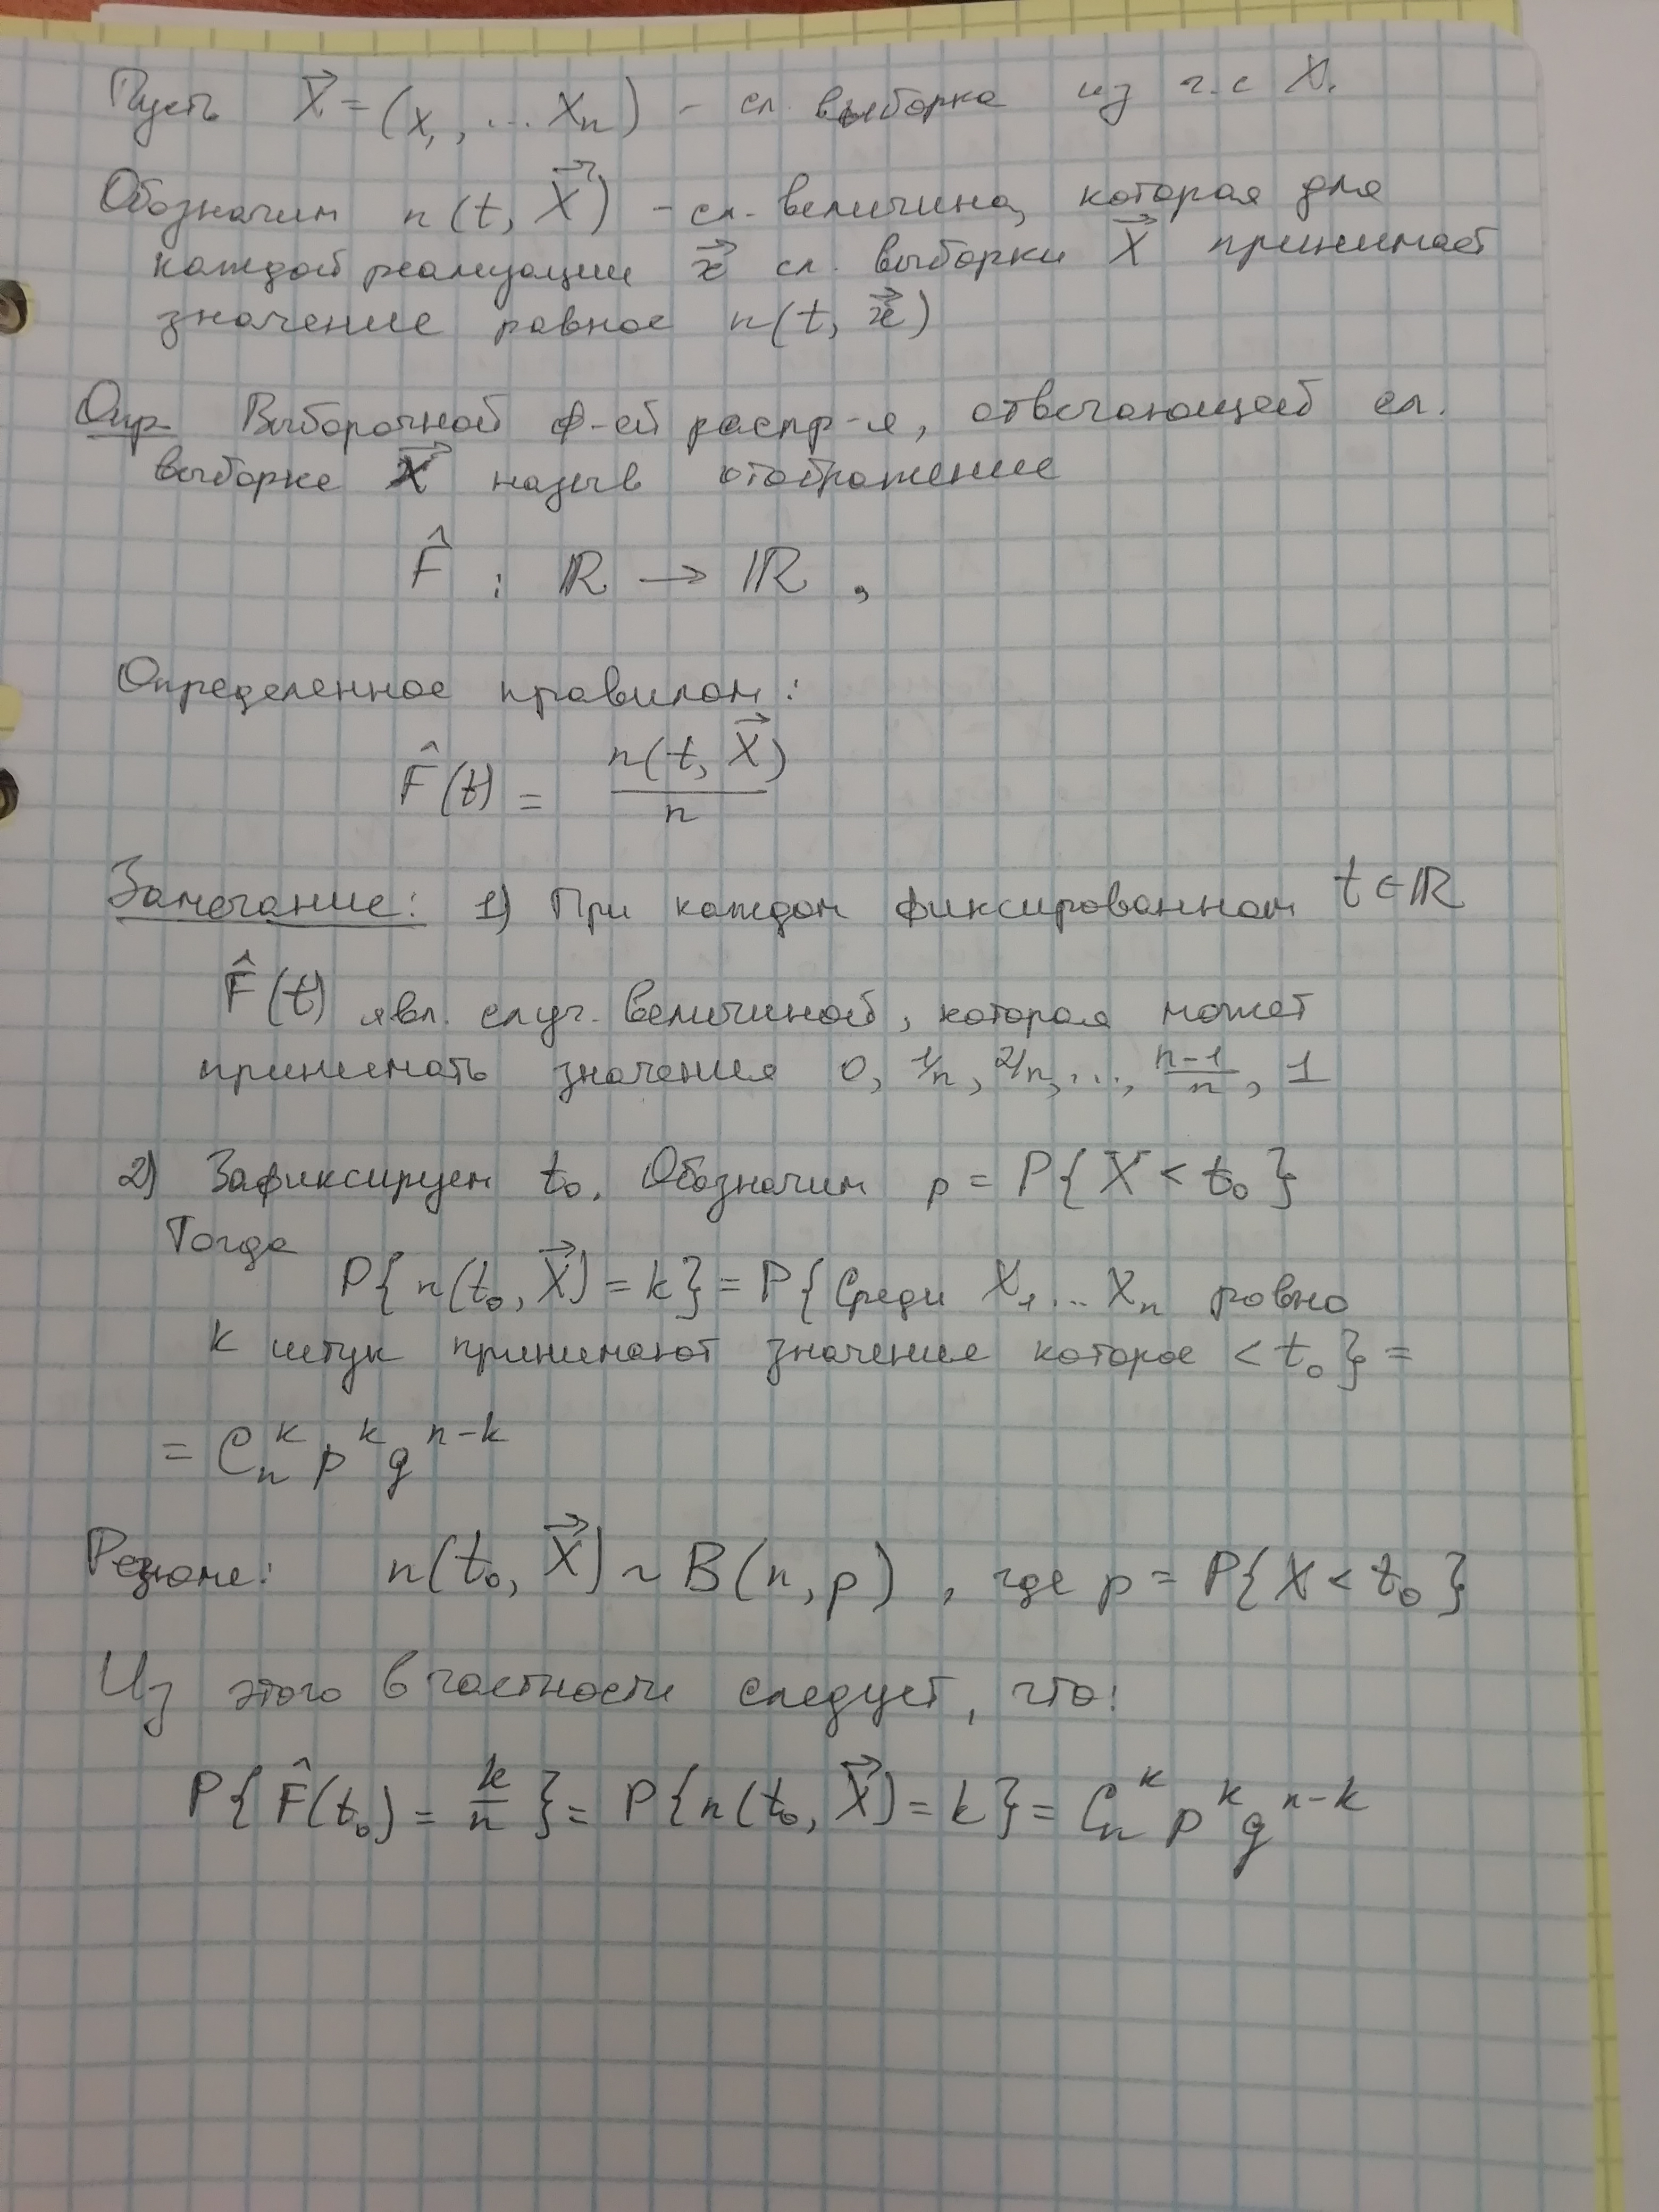 Пусть X⃗ = (X₁, ... Xₙ) - сл. выборка из г.с X.
Обозначим n(t, X⃗) - сл. величина, которая для
каждой реализации x⃗ сл. выборки X⃗ принимает
значение равное n(t, x⃗)
Опр. Выборочной ф-ей распр-я, отвечающей сл.
выборке X⃗ назыв отображение
F̂ : ℝ → ℝ ,
Определенное правилом:
F̂(t) = n(t, X⃗) / n
Замечание: 1) При каждом фиксированном t ∈ ℝ
F̂(t) явл. случ. величиной, которая может
принимать значения 0, 1/n, 2/n, ..., (n-1)/n, 1
2) Зафиксируем t₀. Обозначим p = P{X < t₀}
Тогда
P{n(t₀, X⃗) = k} = P{Среди X₁ ... Xₙ ровно
k штук принимают значение которое < t₀} =
= Cₙᵏ pᵏ qⁿ⁻ᵏ
Резюме: n(t₀, X⃗) ~ B(n, p) , где p = P{X < t₀}
Из этого в частности следует, что:
P{F̂(t₀) = k/n} = P{n(t₀, X⃗) = k} = Cₙᵏ pᵏ qⁿ⁻ᵏ